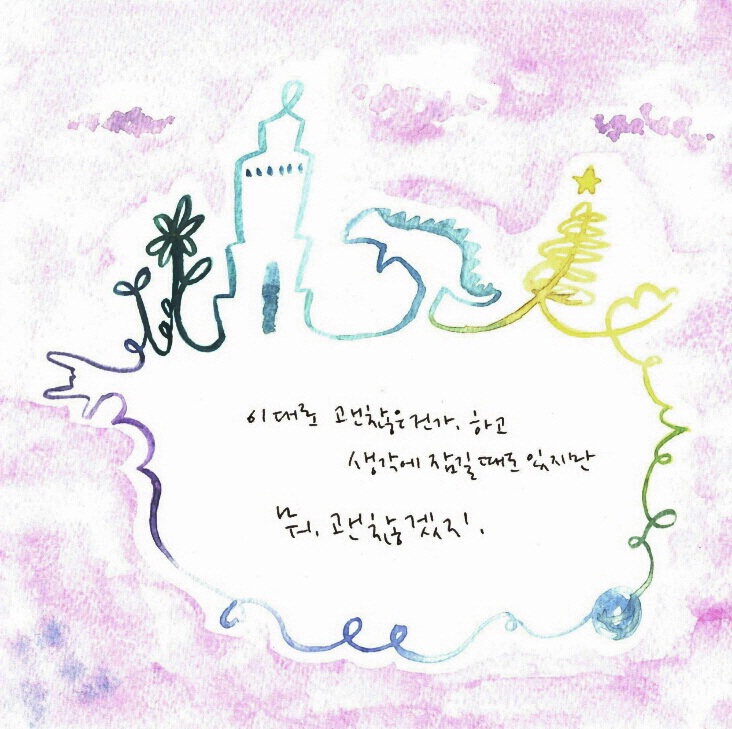 이대로 괜찮은건가, 하고
생각에 잠길때도 있지만
뭐, 괜찮겠지.